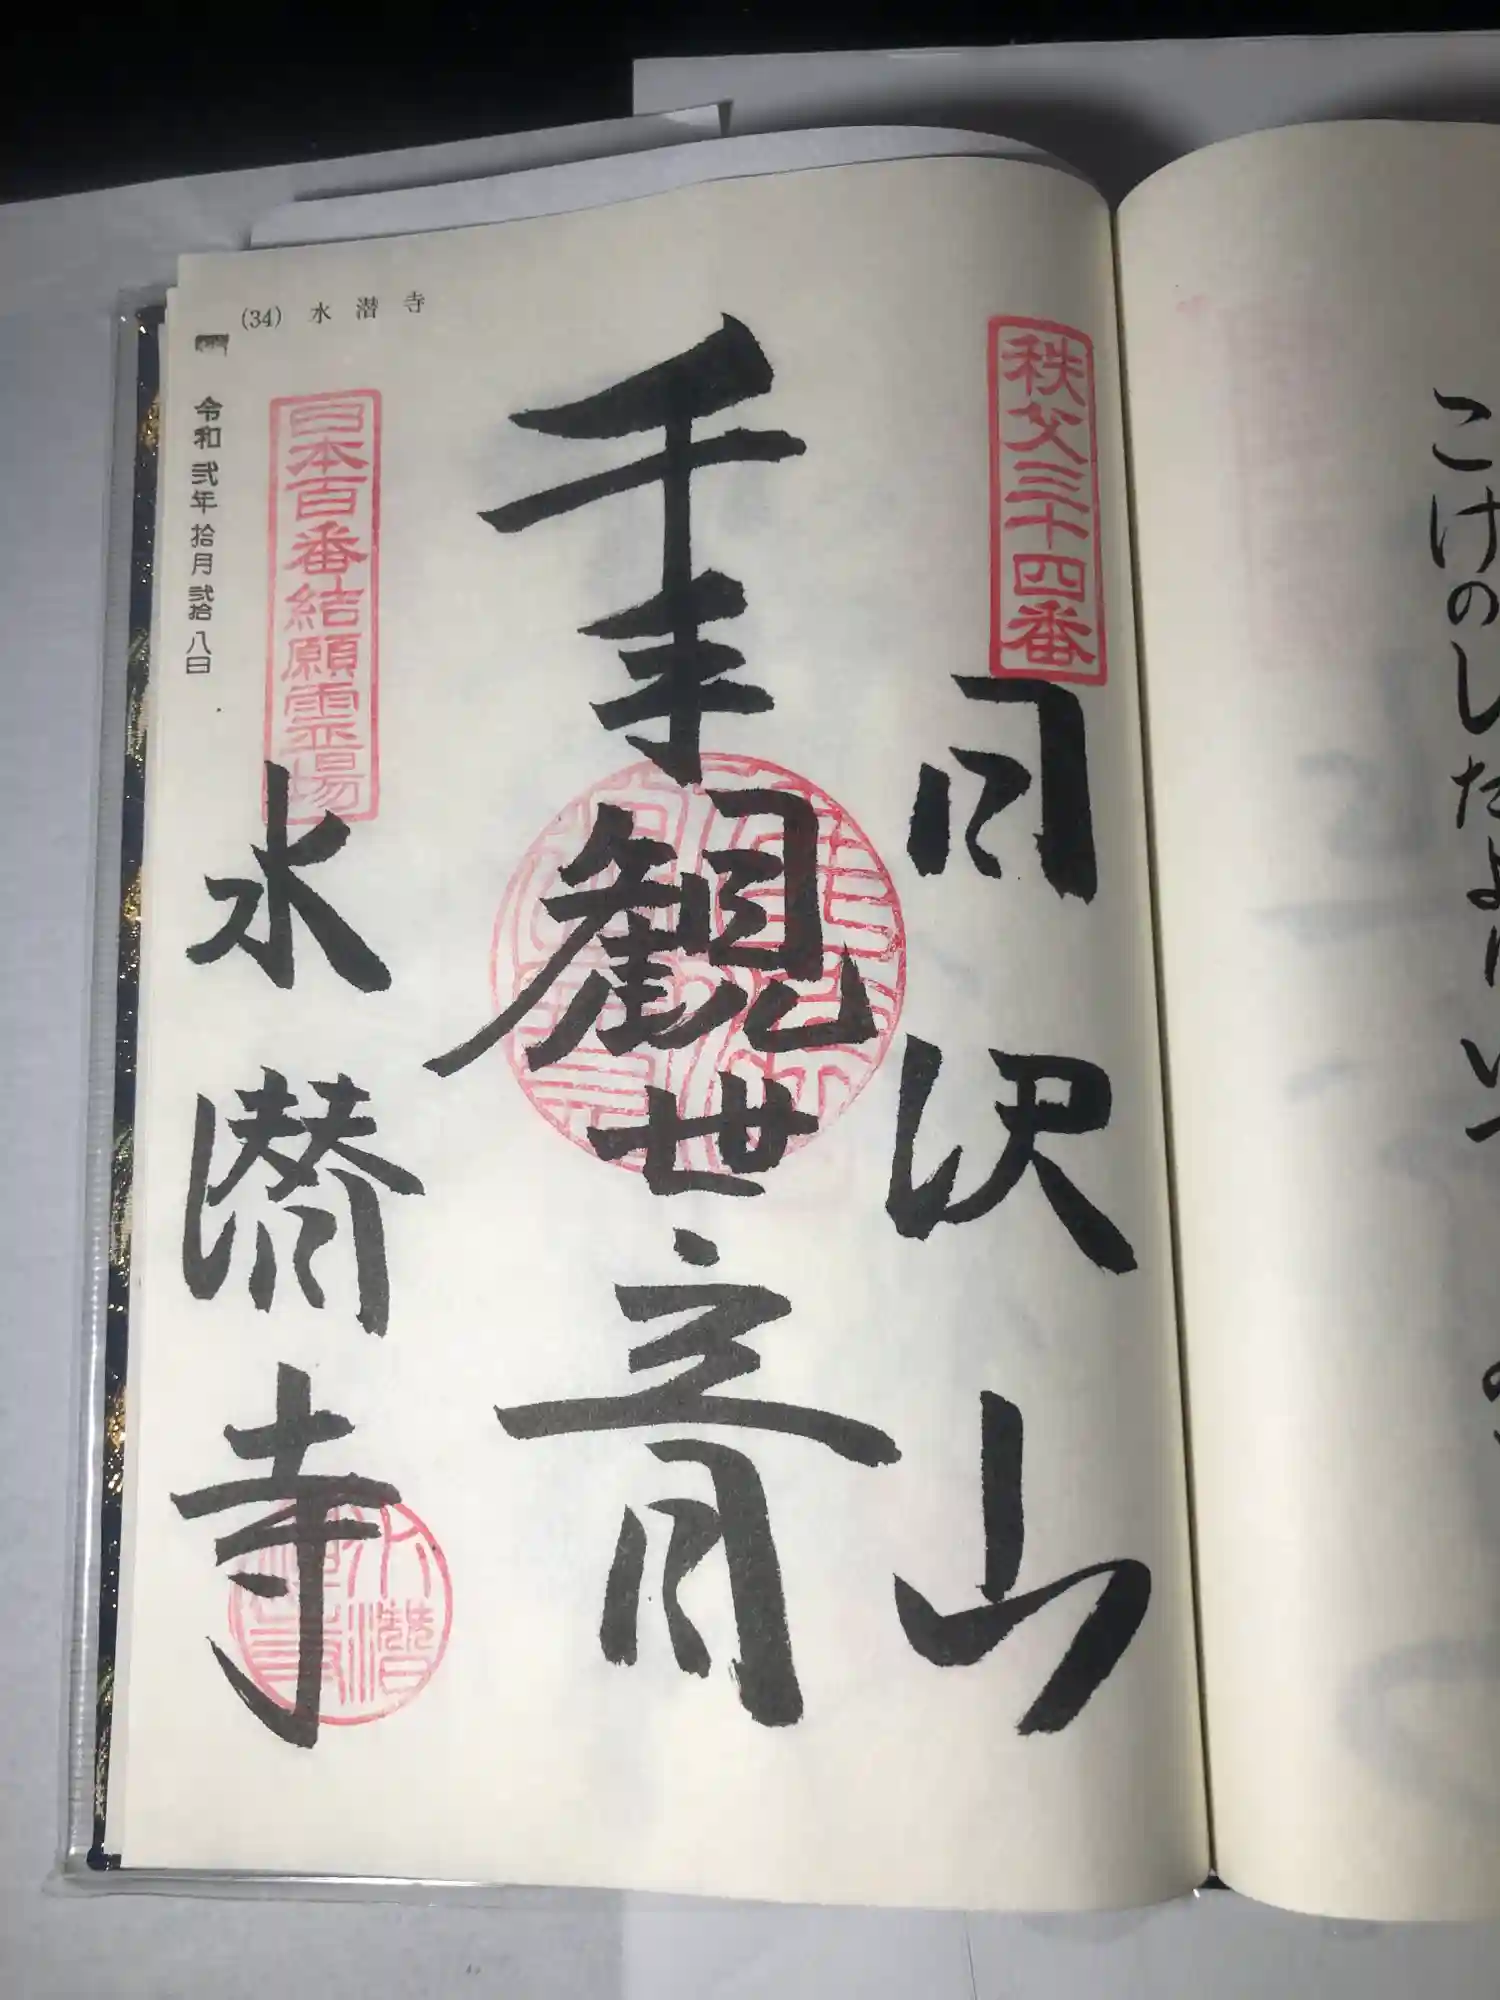 こけのしたより
秩父三十四番
日沢山
千手観世音
日本百番結願霊場
水潜寺
(34) 水潜寺
令和弐年拾月弐拾八日